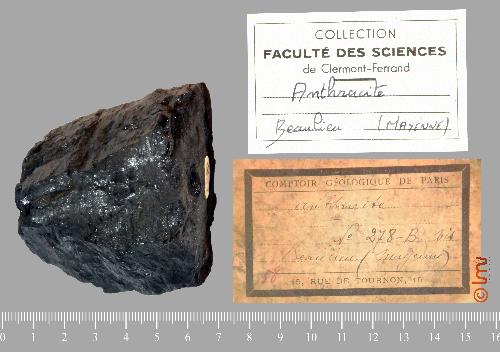 COLLECTION
FACULTÉ DES SCIENCES
de Clermont-Ferrand
Anthracite
Beaulieu (MAYENNE)
COMPTOIR GÉOLOGIQUE DE PARIS
anthracite
No 278-B bis
15, RUE DE TOURNON, 15
© lmv
0 1 2 3 4 5 6 7 8 9 10 11 12 13 14 15 16